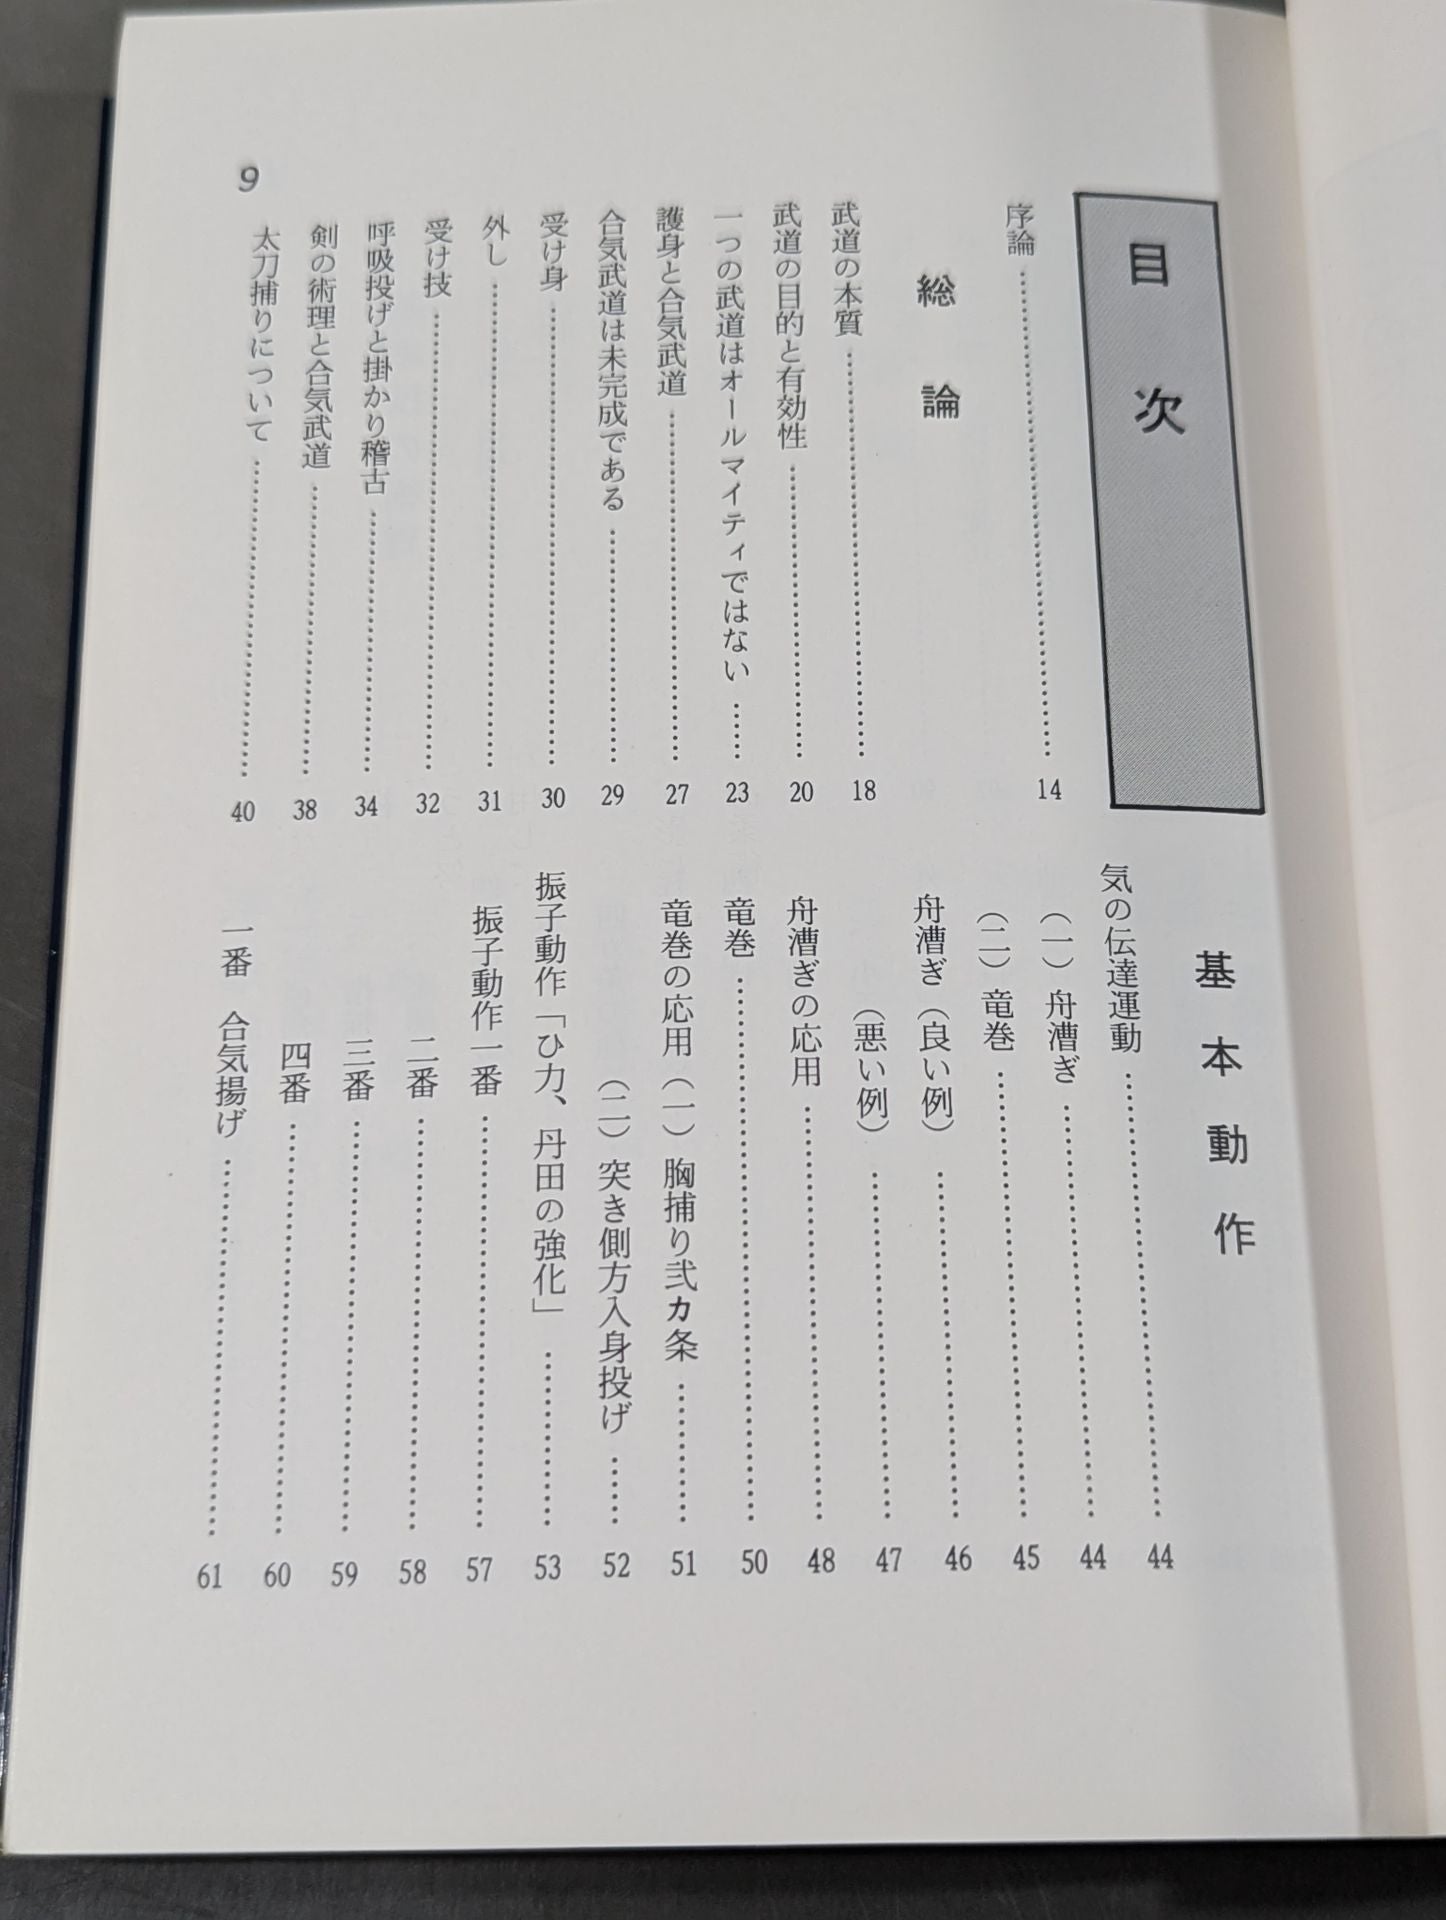 目次
序論 …… 14
総論
武道の本質 …… 18
武道の目的と有効性 …… 20
一つの武道はオールマイティではない …… 23
護身と合気武道 …… 27
合気武道は未完成である …… 29
受け身 …… 30
外し …… 31
受け技 …… 32
呼吸投げと掛かり稽古 …… 34
剣の術理と合気武道 …… 38
太刀捕りについて …… 40
基本動作
気の伝達運動 …… 44
(一)舟漕ぎ …… 44
(二)竜巻 …… 45
舟漕ぎ(良い例) …… 46
(悪い例) …… 47
舟漕ぎの応用 …… 48
竜巻 …… 50
竜巻の応用(一)胸捕り弐カ条 …… 51
(二)突き側方入身投げ …… 52
振子動作「ひ力、丹田の強化」 …… 53
振子動作一番 …… 57
二番 …… 58
三番 …… 59
四番 …… 60
一番 合気揚げ …… 61
9